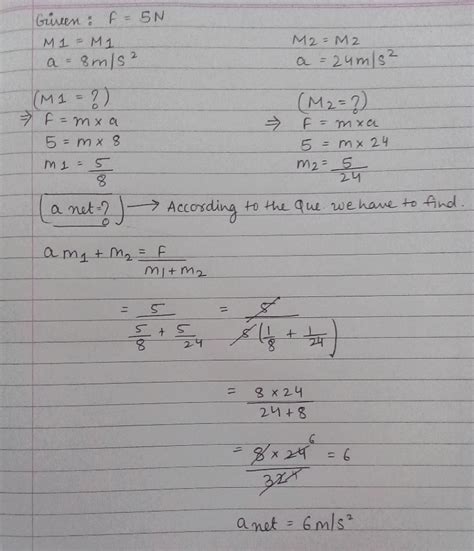 Given : F = 5N
M1 = M1
a = 8m/s²
M2 = M2
a = 24m/s²
(M1 = ?)
⇒ F = m x a
5 = m x 8
m1 = 5/8
(M2 = ?)
⇒ F = m x a
5 = m x 24
m2 = 5/24
(a net = ?) → According to the Que. we have to find.
a m1 + m2 = F/m1+m2
= 5/(5/8 + 5/24) = 5/5(1/8 + 1/24)
= 8 x 24/24+8
= 8 x 24 6/32 = 6
a net = 6m/s²